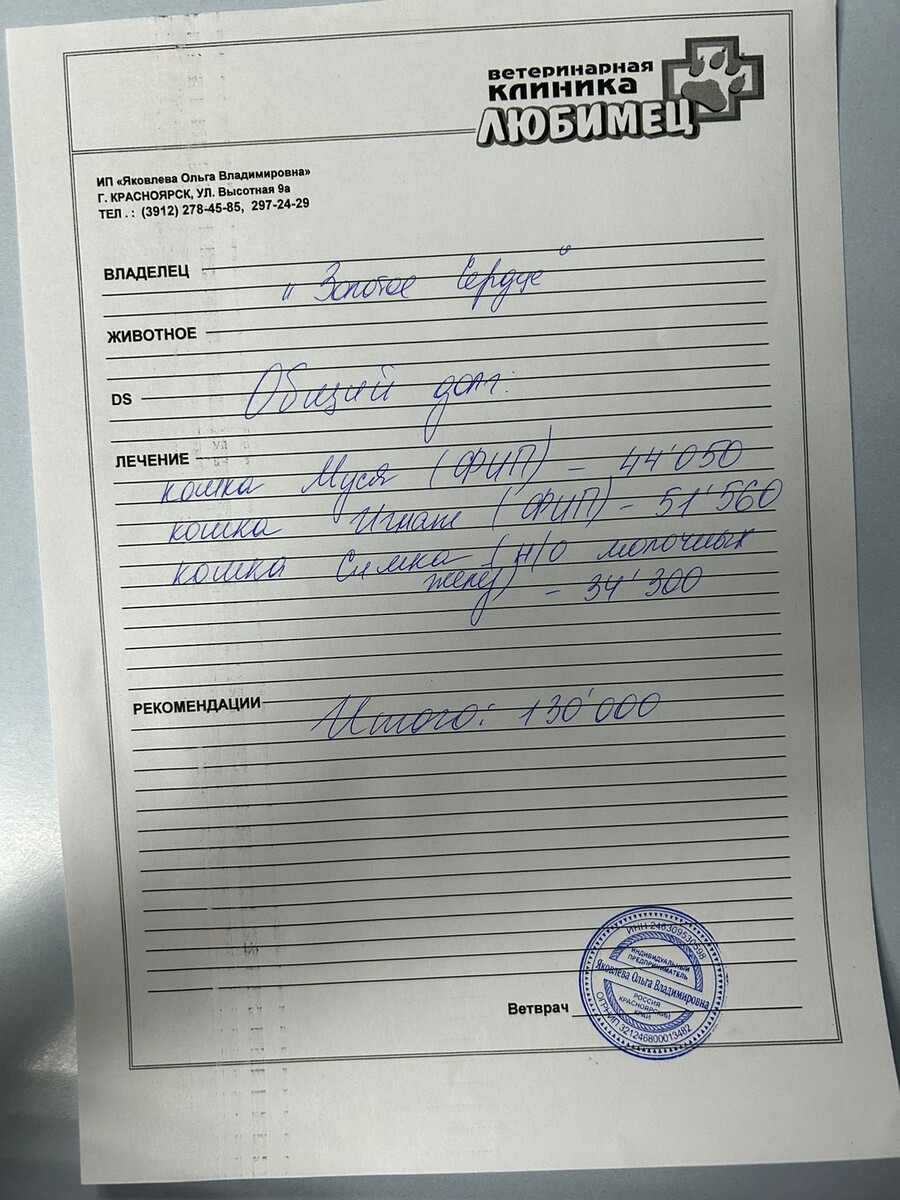 ветеринарная
клиника
ЛЮБИМЕЦ
ИП «Яковлева Ольга Владимировна»
Г. КРАСНОЯРСК, УЛ. Высотная 9а
ТЕЛ . : (3912) 278-45-85, 297-24-29
ВЛАДЕЛЕЦ
"Золотое Сердце"
ЖИВОТНОЕ
DS
Общий долг:
ЛЕЧЕНИЕ
кошка Муся (ФИП) - 44'050
кошка (ФИП) - 51'560
кошка Симка (н/о молочных
желез) - 34'300
РЕКОМЕНДАЦИИ
Итого: 130'000
Ветврач
ИНН 246309530598
ИНДИВИДУАЛЬНЫЙ
ПРЕДПРИНИМАТЕЛЬ
Яковлева Ольга Владимировна
РОССИЯ
КРАСНОЯРСКИЙ
КРАЙ
ОГРНИП 321246800013482